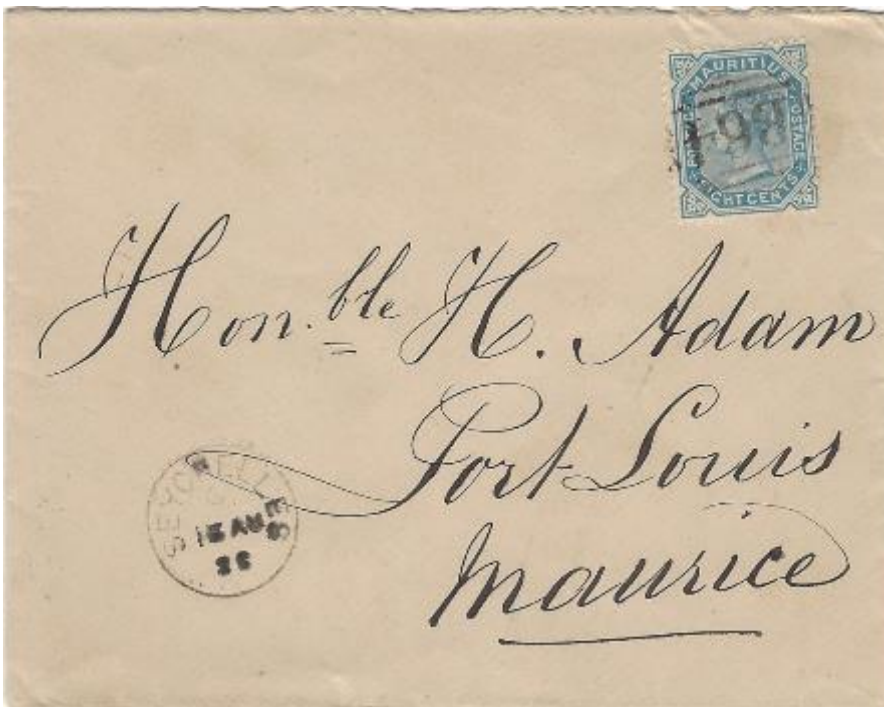 MAURITIUS
POSTAGE
POSTAGE
EIGHT CENTS
B64
Hon.ble H. Adam
Port Louis
Maurice
SEYCHELLES